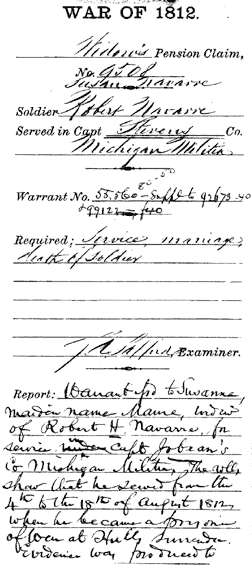 WAR OF 1812.
Widow's Pension Claim,
No. 9508
Susan Navarre
Soldier Robert Navarre
Served in Capt Co.
Michigan Militia
Warrant No. 55,560-80-50 92673-40
99122-40
Required; Service, marriage,
death of soldier
Examiner.
Report: Warrant to Susanna,
maiden name widow
of Robert H Navarre, for
service under Capt Jobean's
Co Michigan Militia, The rolls
show that he served from the
4th to the 18th of August 1812,
when he became a prisoner
of War at Hulls Surrender.
Evidence was produced to